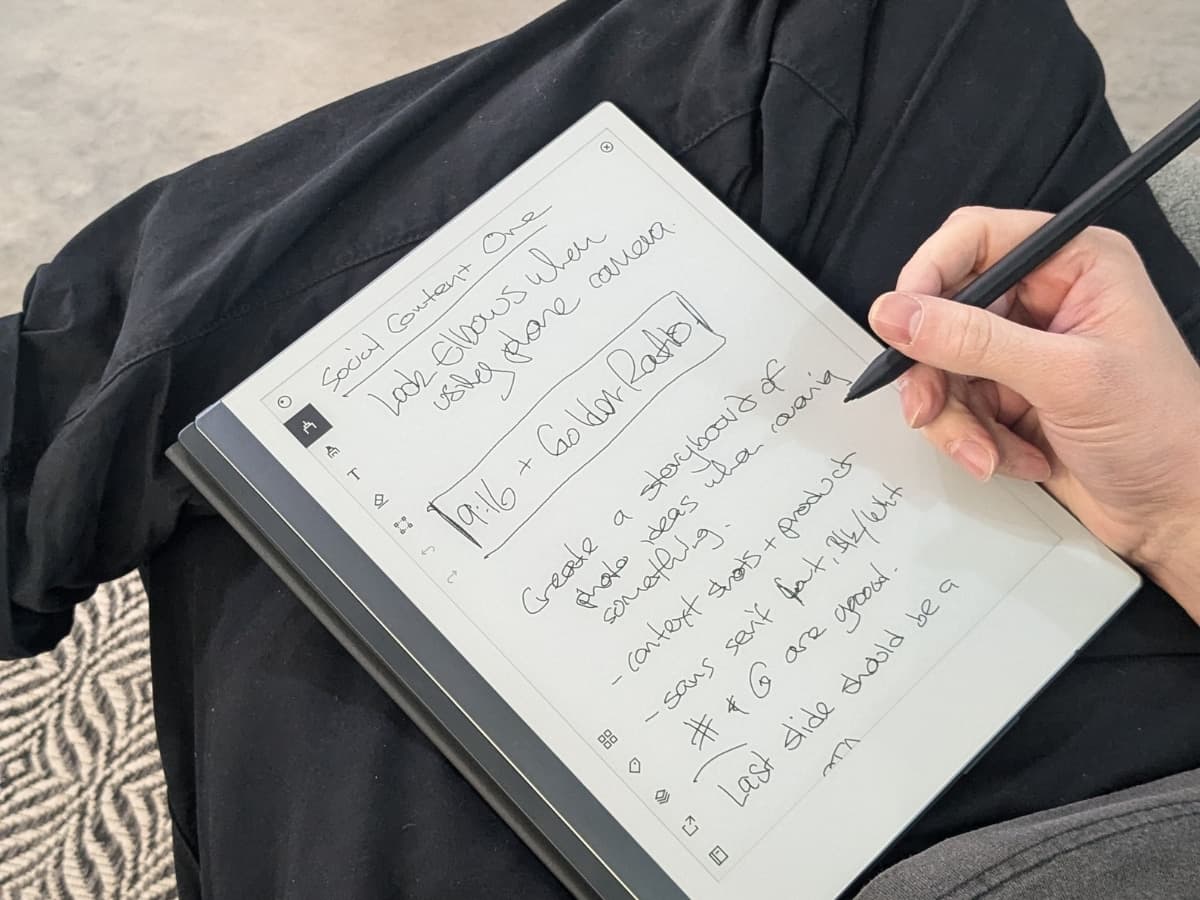 Social Content One
Lock Elbows when
using phone camera.
9:16 + Golden Ratio!
Create a storyboard of
photo ideas when covering
something.
- context shots + product
- sans serif font, Blk/Wht
# & @ are good.
Last slide should be a
CTA
T